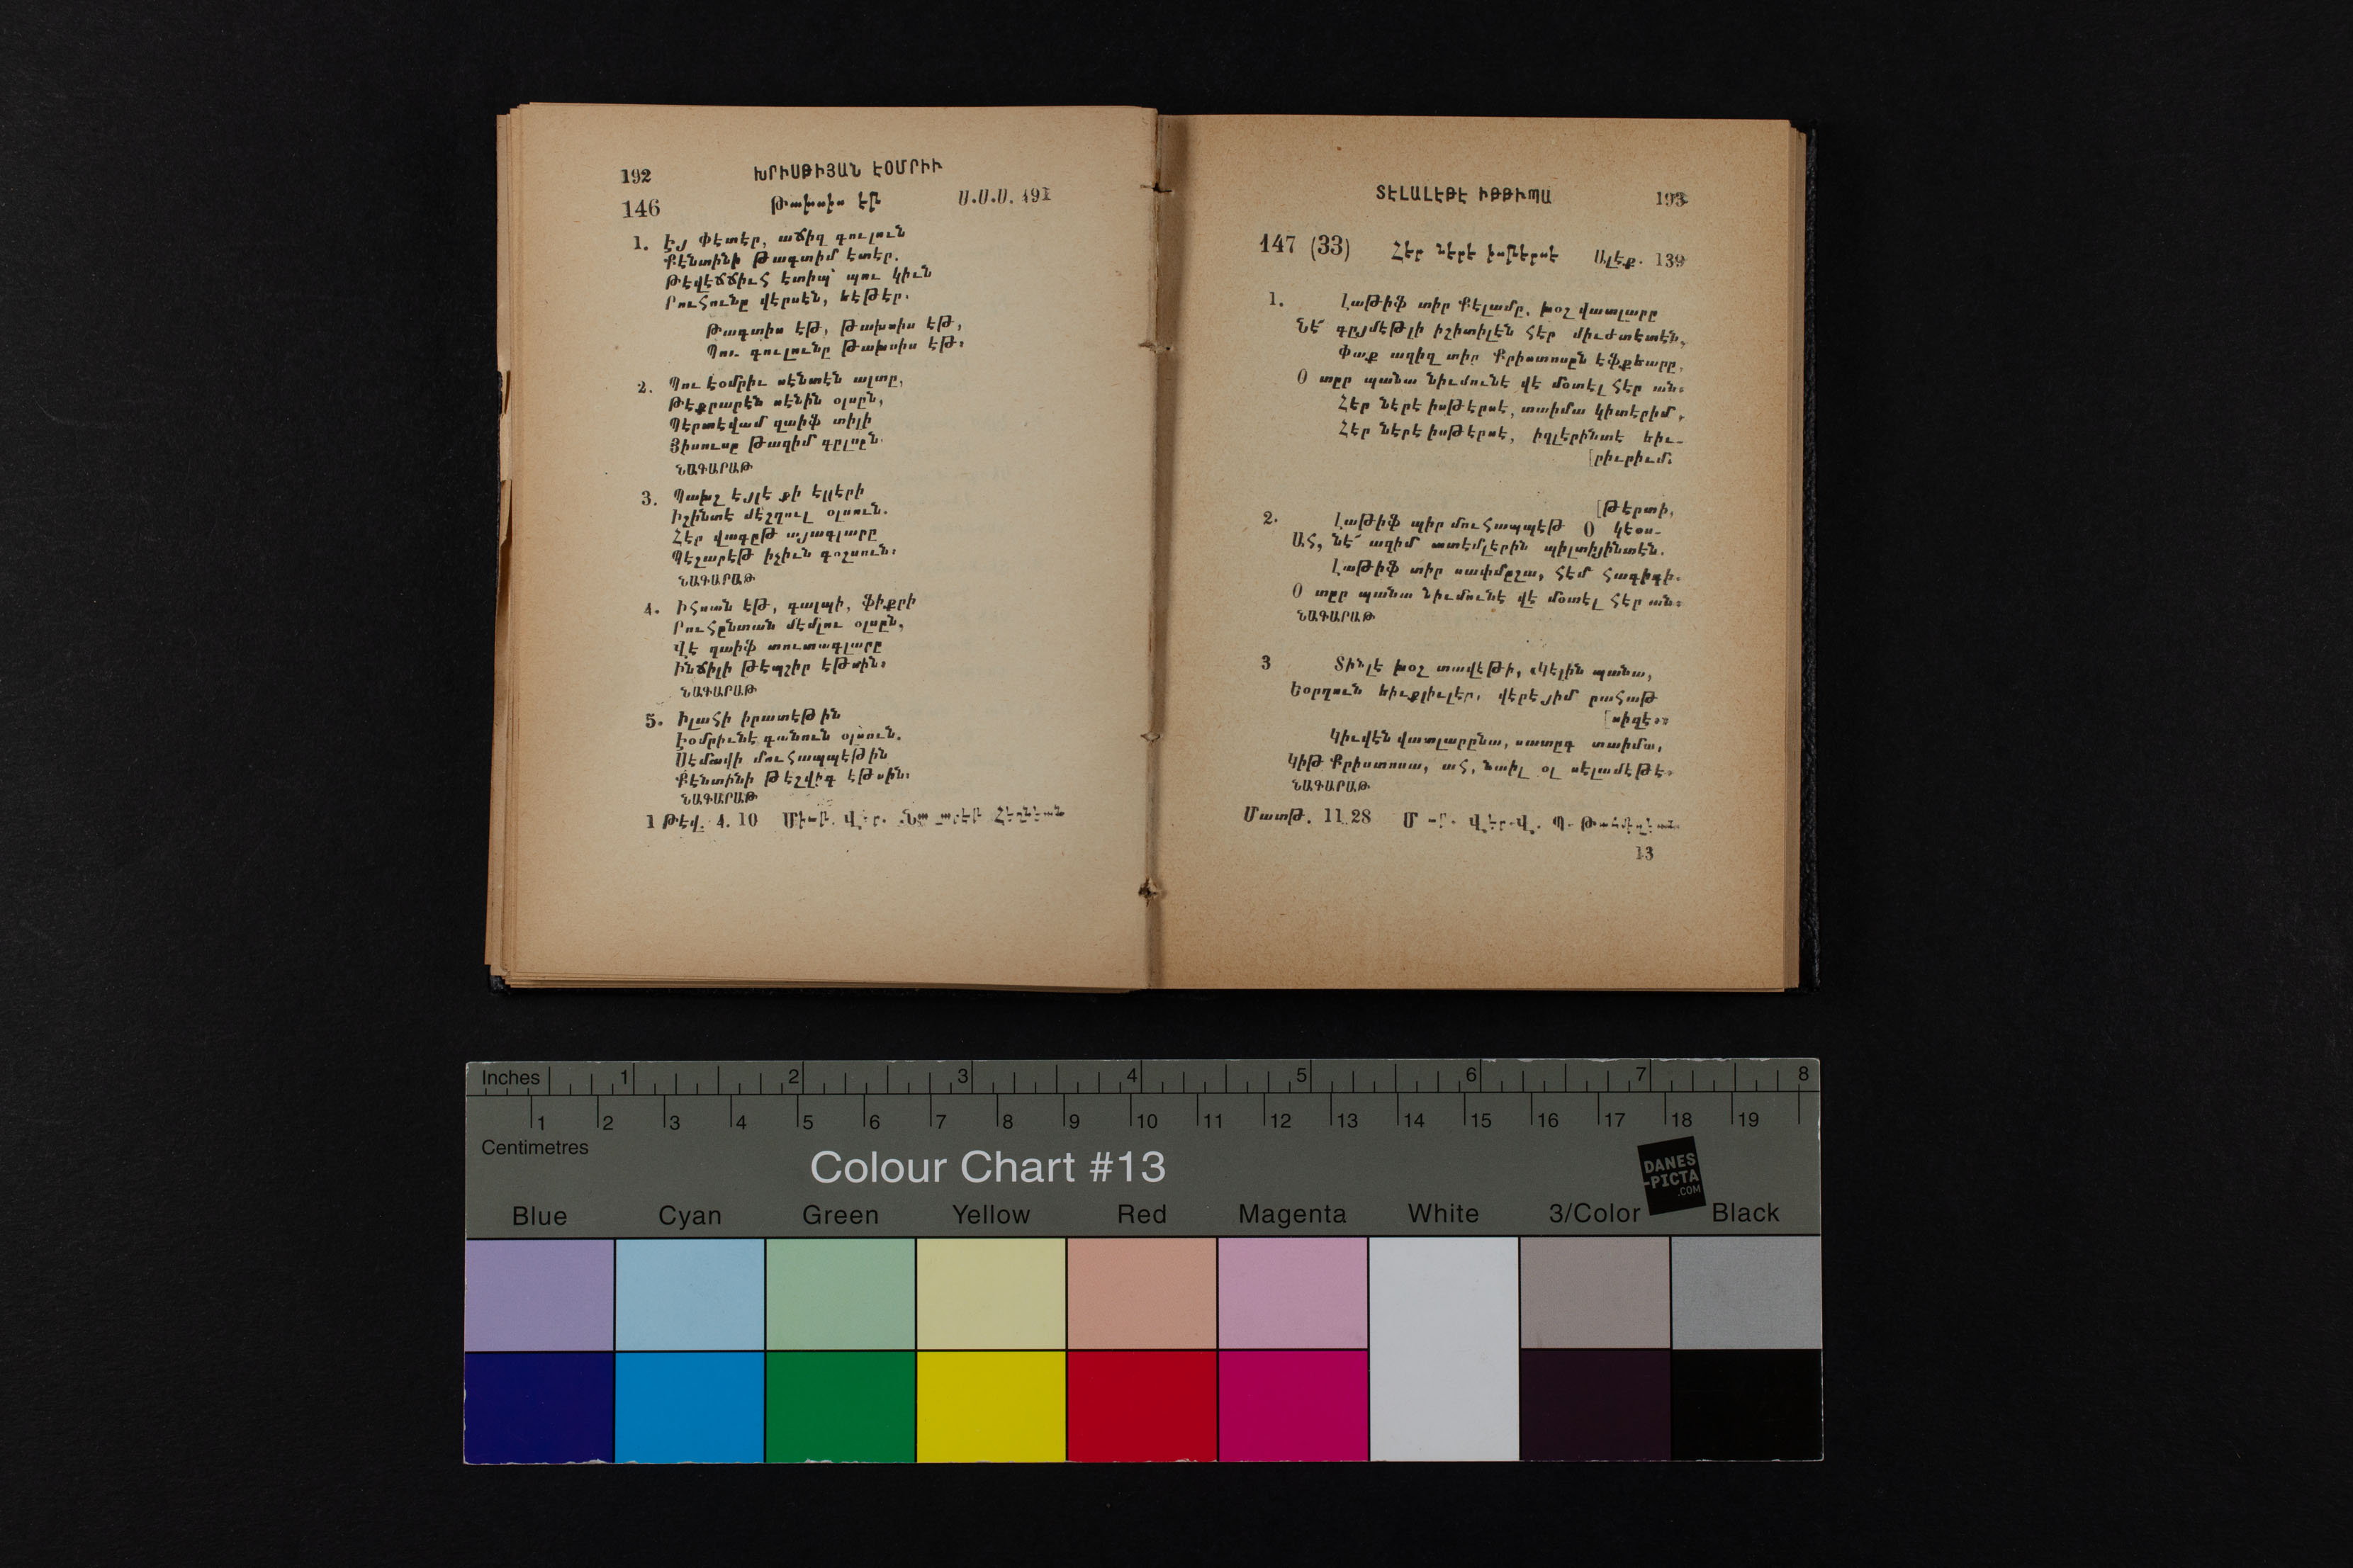 192 ԽՐԻՍԹԻՅԱՆ ԷՕՄՐԻՒ
146 Թախսիս էթ Ս.Ս.Ս. 491
1. Էյ Փէտէր, աճիզ գուլուն
Քէնտինի Թագտիմ էտէր.
Թէվէճճիւհ էտիպ՝ պու կիւն
Րուհունը վէրսէն, եէթէր.
Թագտիս էթ, Թախսիս էթ,
Պու գուլունը Թախսիս էթ։
2. Պու էօմրիւ սէնտէն ալտը,
Թէքրարէն սէնին օլսըն,
Պէրտէվամ զաիֆ տիլի
Յիսուսը Թազիմ գըլսըն.
ՆԱԳԱՐԱԹ
3. Պախշ էյլէ քի էլլէրի
Իշինտէ մէշղուլ օլսուն.
Հէր վագըթ այագլարը
Պէշարէթ իչիւն գօշսուն։
ՆԱԳԱՐԱԹ
4. Իհսան էթ, գալպի, ֆիքրի
Րուհընտան մէմլու օլսըն,
Վէ զաիֆ տուտագլարը
Ինճիլի Թէպշիր էթսին։
ՆԱԳԱՐԱԹ
5. Իլահի իրատէթին
Էօմրիւնէ գանուն օլսուն.
Սէմավի մուհապպէթին
Քէնտինի Թէշվիգ էթսին։
ՆԱԳԱՐԱԹ
1 Թէվ. 4. 10
ՏԷԼԱԼԷԹԷ ԻԹԹԻՊԱ 193
147 (33) Հէր նէրէ իսթէրսէ Ալէք. 139
1. Լաթիֆ տիր Քէլամը, խօշ վատլարը
Նէ՜ գըյմէթլի իշիտիլէն հէր միւժտէտէն,
Փաք ազիզ տիր Քրիստոսըն էֆքեարը,
Օ տըր պանա նիւմունէ վէ մօտէլ հէր ան։
Հէր նէրէ իսթէրսէ, տաիմա կիտէրիմ,
Հէր նէրէ իսթէրսէ, իզլէրինտէ եիւ-
[րիւրիւմ։
[թէրտի,
2. Լաթիֆ պիր մուհապպէթ Օ կէօս-
Ահ, նէ՜ ազիմ ատէմլէրին պիլտիյինտէն.
Լաթիֆ տիր սափմըշա, հէմ հագիգի.
Օ տըր պանա նիւմունէ վէ մօտէլ հէր ան։
ՆԱԳԱՐԱԹ
3 Տինլէ խօշ տավէթի, «Կէլին պանա,
Եօրղուն եիւքլիւլէր, վէրէյիմ րահաթ
[սիզէ»։
Կիւվէն վատլարընա, սատըգ տաիմա,
Կիթ Քրիստոսա, ահ, նաիլ օլ սէլամէթէ։
ՆԱԳԱՐԱԹ
Մատթ. 11.28
13
Inches 1 2 3 4 5 6 7 8
1 2 3 4 5 6 7 8 9 10 11 12 13 14 15 16 17 18 19
Centimetres
Colour Chart #13
DANES
-PICTA
.COM
Blue Cyan Green Yellow Red Magenta White 3/Color Black